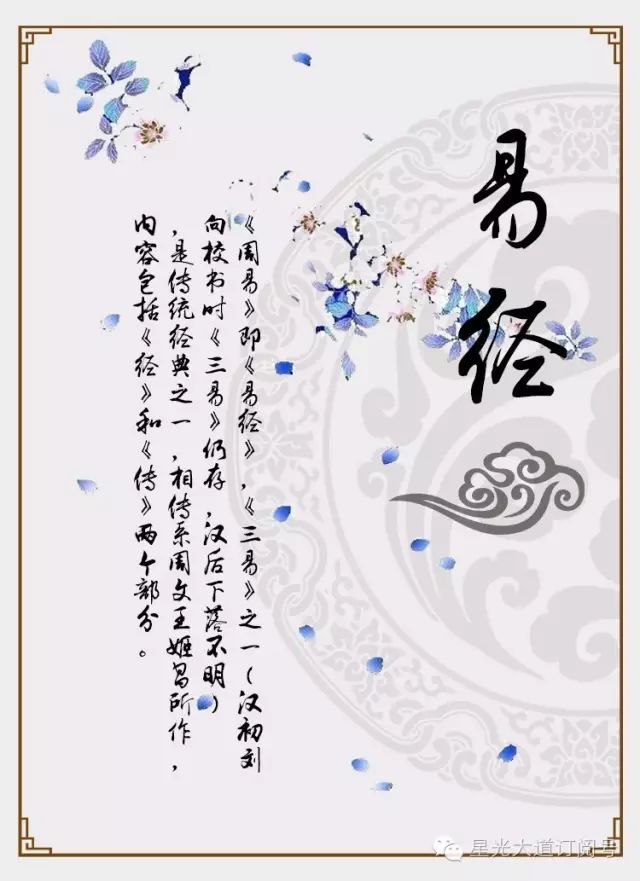 易经
《周易》即《易经》,《三易》之一(汉初刘
向校书时《三易》仍存,汉后下落不明)
,是传统经典之一,相传系周文王姬昌所作,
内容包括《经》和《传》两个部分。
星光大道订阅号